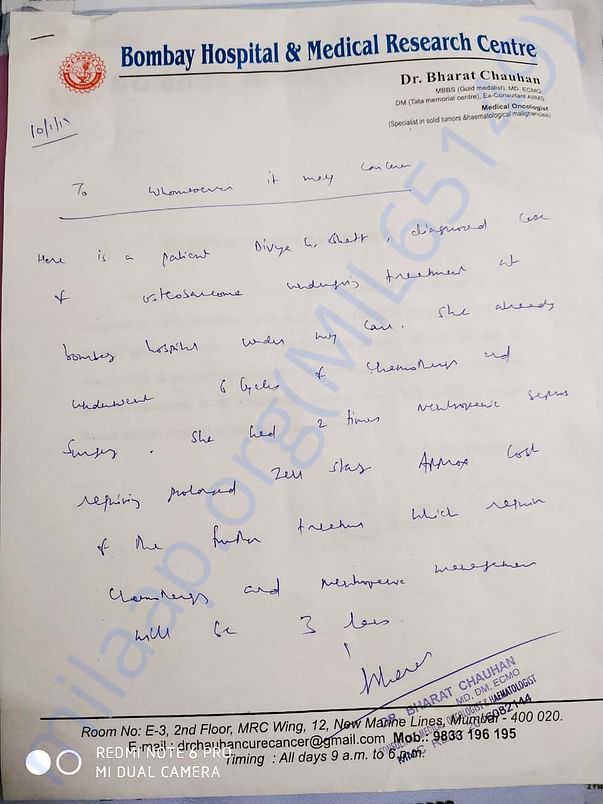 Bombay Hospital & Medical Research Centre
Dr. Bharat Chauhan
MBBS (Gold medalist), MD, ECMO,
DM (Tata memorial centre), Ex-Consultant AIIMS
Medical Oncologist
(Specialist in solid tumors &haematological malignancies)
To whomsoever it may concern
Here is a patient Divya G. Bhatt, diagnosed case
of osteosarcoma undergoing treatment at
bombay hospital under my care. She already
underwent 6 cycles of chemotherapy and
surgery. She had 2 times neutropenic sepsis
requiring prolonged stay Approx cost
of the further treatment which require
chemotherapy and neutropenic management
will be 3 lacs
milaap.org(MIL65140)
DR. BHARAT CHAUHAN
MD, DM, ECMO
CONSULTANT MEDICAL ONCOLOGIST & HAEMATOLOGIST
Room No: E-3, 2nd Floor, MRC Wing, 12, New Marine Lines, Mumbai - 400 020.
E-mail : drchauhancurecancer@gmail.com Mob.: 9833 196 195
Timing : All days 9 a.m. to 6 p.m.
REDMI NOTE 6 PRO
MI DUAL CAMERA